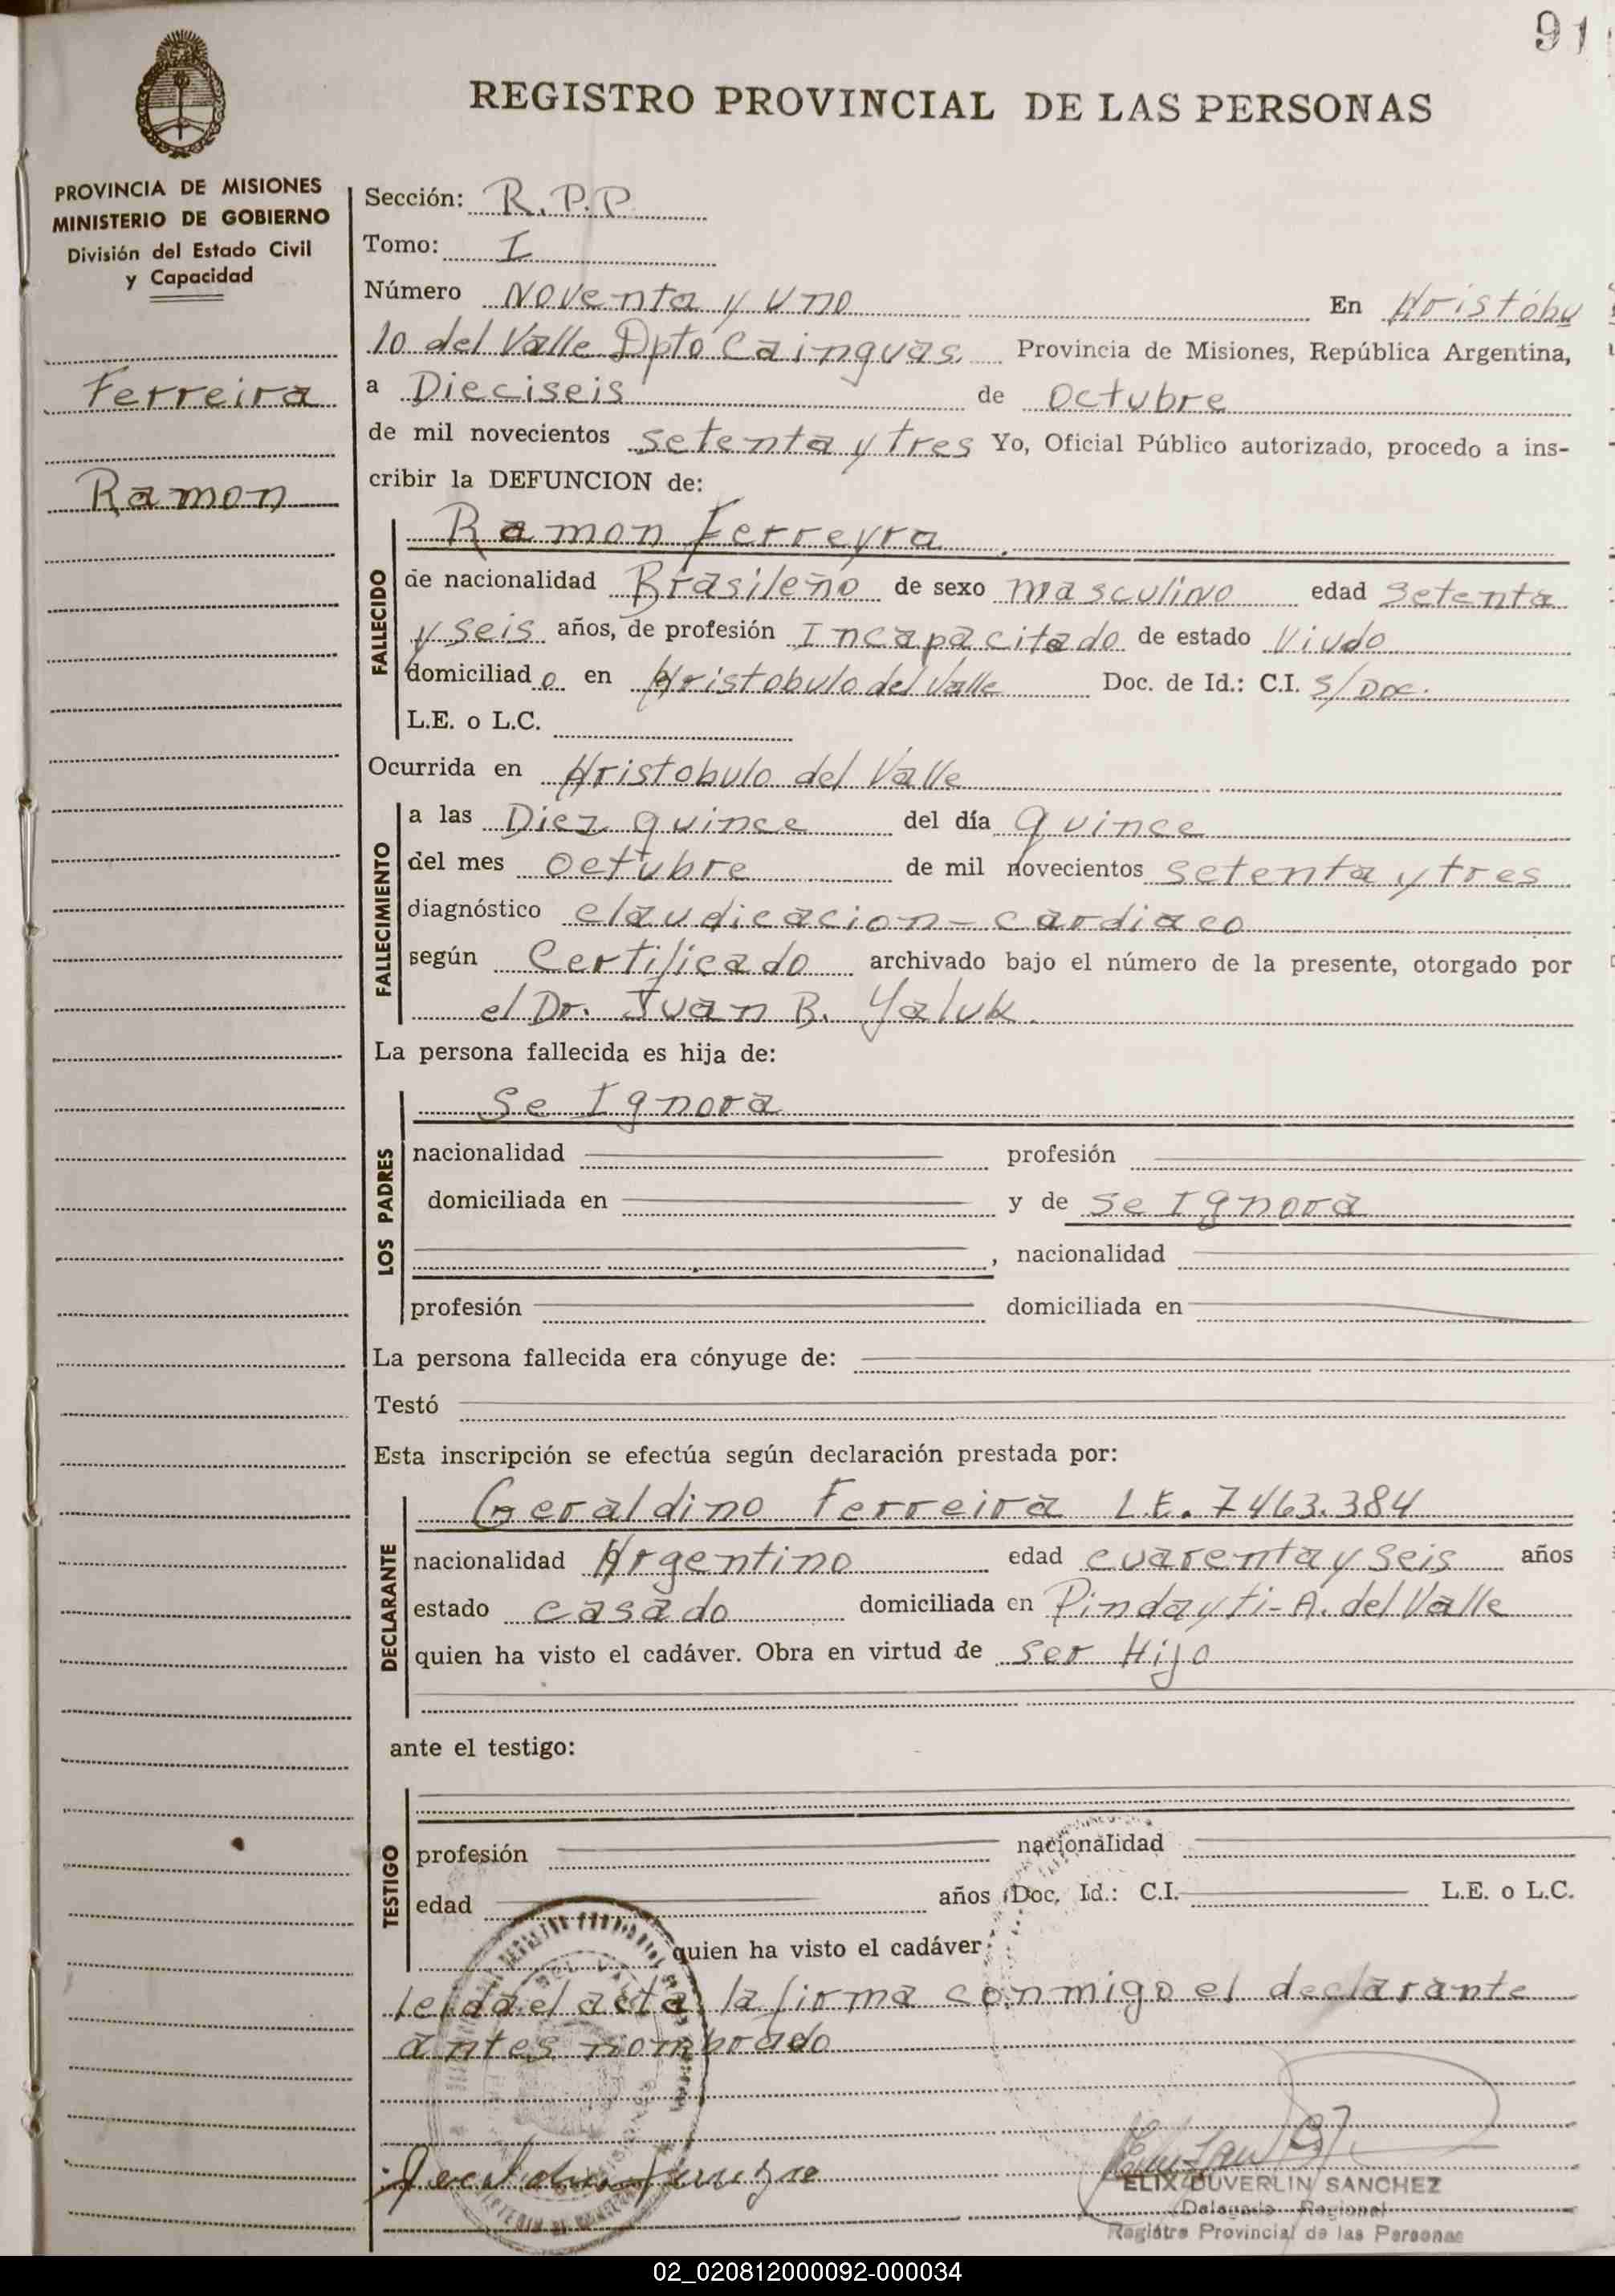 91
REGISTRO PROVINCIAL DE LAS PERSONAS
PROVINCIA DE MISIONES
MINISTERIO DE GOBIERNO
División del Estado Civil
y Capacidad
Ferreira
Ramon
Sección: R.P.P.
Tomo: I
Número Noventa y uno En Aristóbu
lo del Valle Dpto Cainguas Provincia de Misiones, República Argentina,
a Dieciseis de octubre
de mil novecientos setenta y tres Yo, Oficial Público autorizado, procedo a ins-
cribir la DEFUNCION de:
Ramon Ferreyra
FALLECIDO
de nacionalidad Brasileño de sexo masculino edad setenta
y seis años, de profesión Incapacitado de estado Viudo
domiciliado en Aristobulo del Valle Doc. de Id.: C.I. S/Doc.
L.E. o L.C.
Ocurrida en Aristobulo del Valle
FALLECIMIENTO
a las Diez quince del día quince
del mes octubre de mil novecientos setenta y tres
diagnóstico claudicacion-cardiaco
según Certificado archivado bajo el número de la presente, otorgado por
el Dr. Juan B. Yaluk.
La persona fallecida es hija de:
LOS PADRES
Se Ignora
nacionalidad profesión
domiciliada en y de Se Ignora
, nacionalidad
profesión domiciliada en
La persona fallecida era cónyuge de:
Testó
Esta inscripción se efectúa según declaración prestada por:
DECLARANTE
Geraldino Ferreira L.E. 7463.384
nacionalidad Argentino edad cuarenta y seis años
estado casado domiciliada en Pindayti-A. del Valle
quien ha visto el cadáver. Obra en virtud de ser Hijo
ante el testigo:
TESTIGO
profesión nacionalidad
edad años Doc. Id.: C.I. L.E. o L.C.
quien ha visto el cadáver
leida el acta, la firma conmigo el declarante
antes nombrado
ELIX DUVERLIN SANCHEZ
Delegado Regional
Registro Provincial de las Personas
02_020812000092-000034